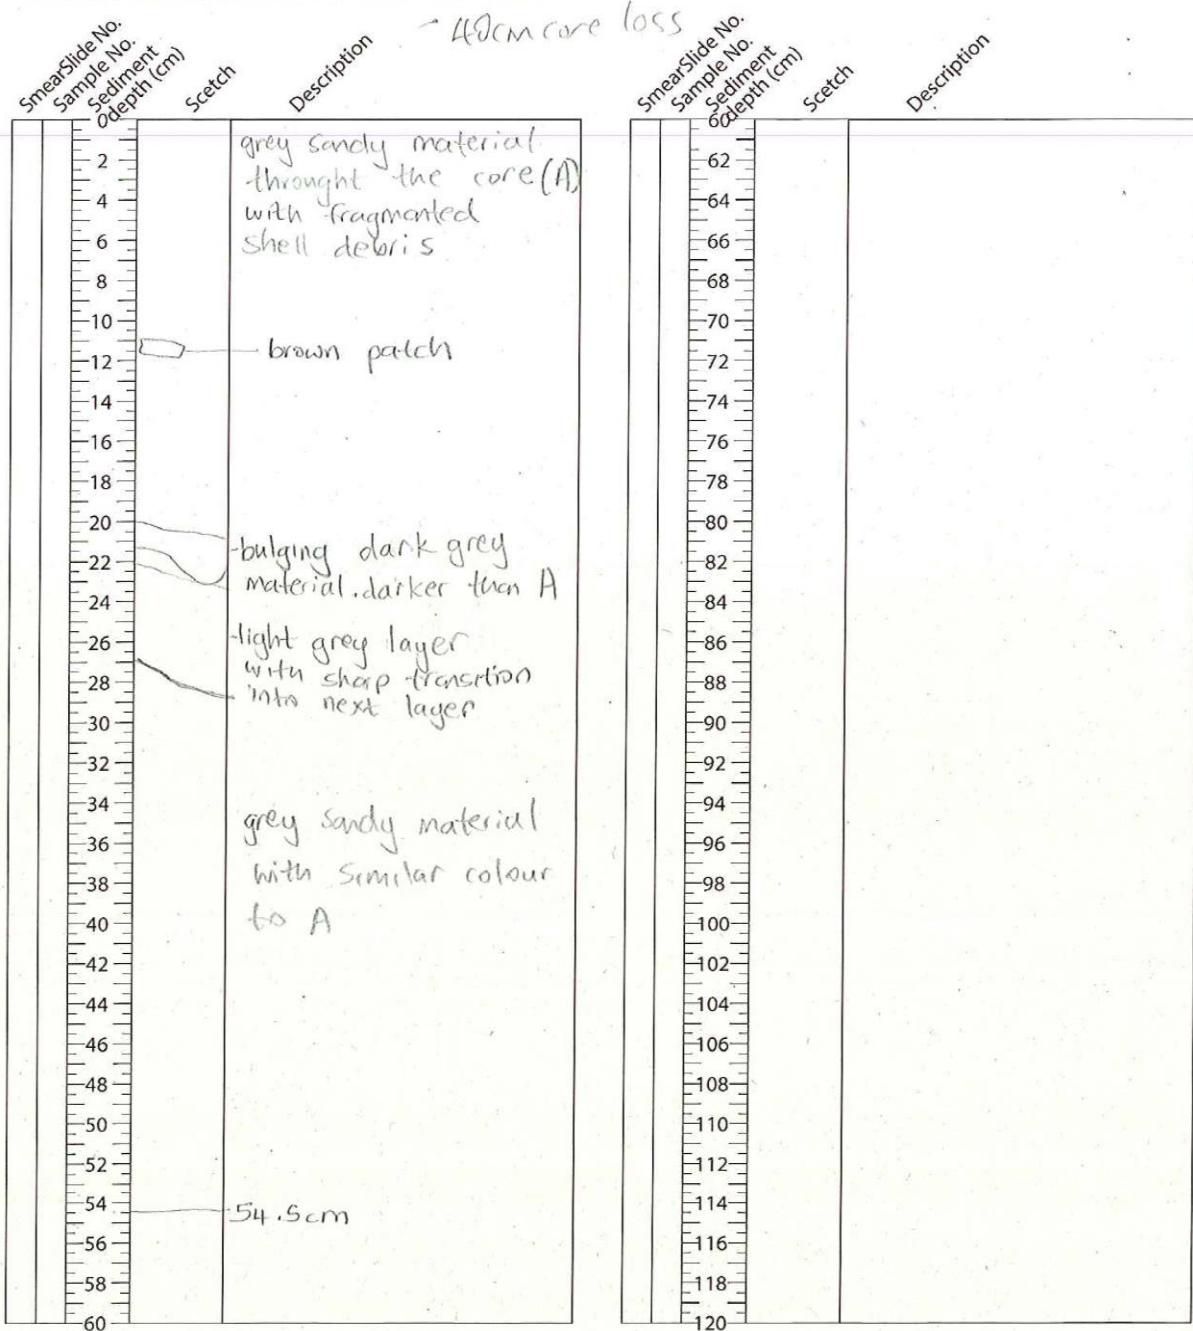 - 40cm core loss
SmearSlide No.
Sample No.
Sediment
depth (cm)
Scetch
Description
0
2
4
6
8
10
12
14
16
18
20
22
24
26
28
30
32
34
36
38
40
42
44
46
48
50
52
54
56
58
60
grey sandy material
throught the core (A)
with fragmented
shell debris
brown patch
-bulging dark grey
material. darker than A
-light grey layer
with sharp transition
into next layer
grey sandy material
with similar colour
to A
54.5cm
SmearSlide No.
Sample No.
Sediment
depth (cm)
Scetch
Description
60
62
64
66
68
70
72
74
76
78
80
82
84
86
88
90
92
94
96
98
100
102
104
106
108
110
112
114
116
118
120